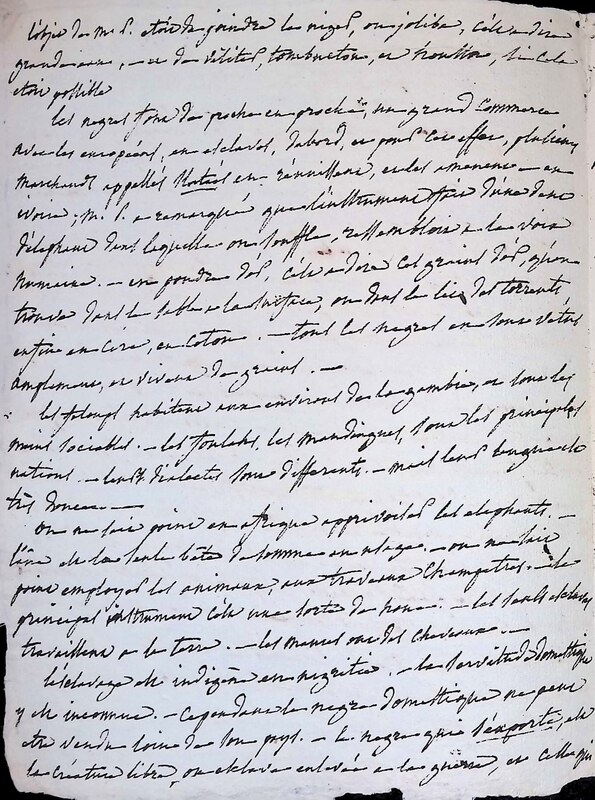 l'objet de m. P. etoit de joindre le niger, ou joliba, c'est a dire
grande eau, — et de visiter, tombuctou, et houssa, si cela
etoit possible
les negres font de proche en proche, un grand commerce
avec les européens, en esclaves, dabord, et pour cet effet, plusieurs
marchands appellés en réunissent, et les amenent — en
ivoire; m. P. a remarqué que l'instrument fait d'une dent
d'elephant dans lequelle on souffle, ressembloit a la voix
humaine. — en poudre d'or, c'est a dire cet grains d'or, qu'on
trouve dans le sable a la surface, ou dans le lit des torrents,
enfin en cire, en coton. — tous les negres en sont vetus
amplement, et vivent de grains. —
les feloups habitent aux environs de la gambie, et sont les
moins sociables. — les foulahs, les mandingues, sont les principales
nations. — leurs dialectes sont differents. — mais leur langue est
très douce. —
on ne sait point en afrique apprivoiser les elephants. —
l'âne est la seule bête de somme en usage. — on ne sait
point employer les animaux, aux travaux champetres. — le
principal instrument c'est une sorte de houe. — les seuls esclaves
travaillent a la terre. — les maures ont des chevaux. —
l'esclavage est indigène en negritie. — la servitude domestique
y est inconnue. — cependant le negre domestique ne peut
etre vendu loin de son pays. — le negre qui s'exporte, est
la créature libre, ou esclave enlevée a la guerre, et celle qui